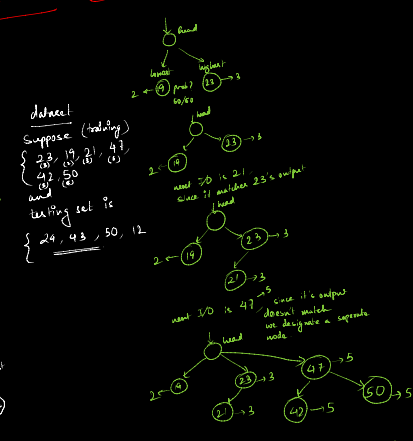 dataset
suppose (training)
{ 23, 19, 21, 47,
(3) (2) (3) (5)
42, 50
(5) (5)
and
testing set is
{ 24, 43, 50, 12
head
lowest highest
2 ← 19 prob? 23 → 3
50/50
head
2 ← 19 23 → 3
next I/O is 21
since it matches 23's output
head
2 ← 19 23 → 3
21 → 3
next I/O is 47 → 5, since it's output
doesn't match
we designate a separate
node
head
47 → 5
2 ← 19 23 → 3 50 → 5
21 → 3 42 → 5